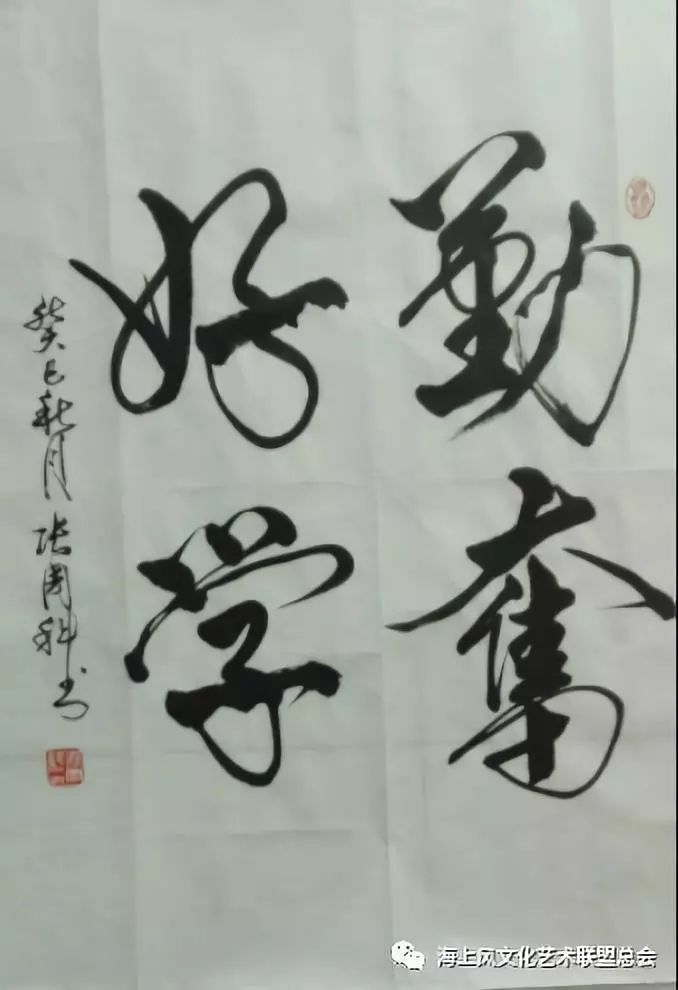 勤奮
好学
癸巳秋月张周科书
海上风文化艺术联盟总会